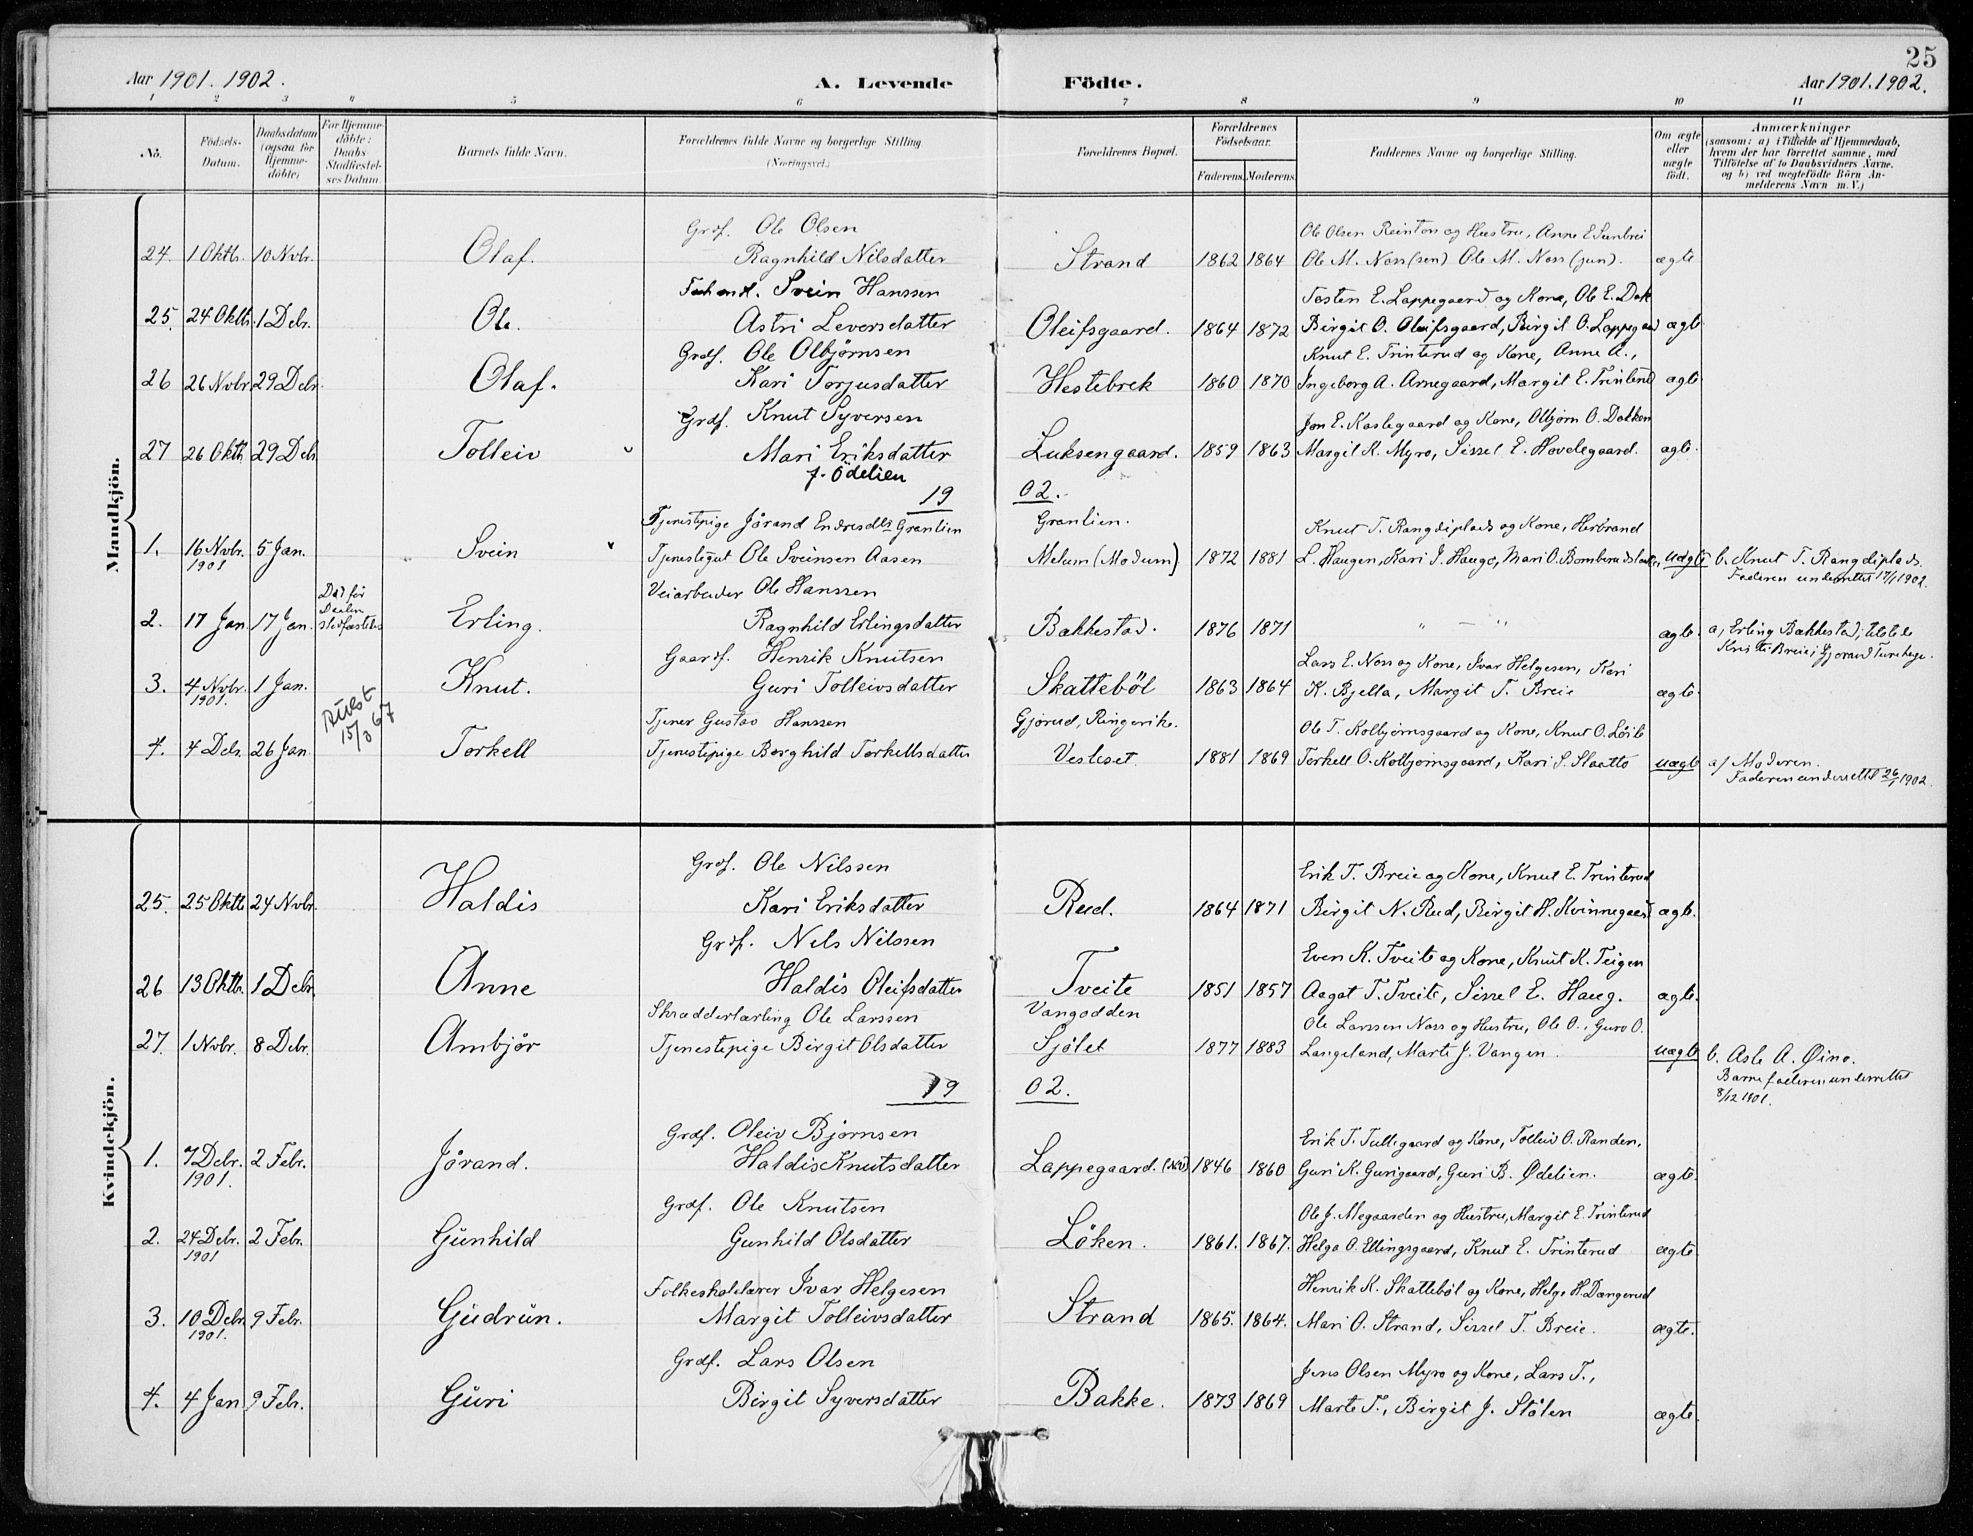 25
Aar 1901. 1902. A. Levende Födte. Aar 1901. 1902.
1 2 3 4 5 6 7 8 9 10 11
No.
Födsels-Datum.
Daabsdatum (ogsaa for Hjemme-döbte)
For Hjemme-döbte: Daabs Stadfæstel-ses Datum.
Barnets fulde Navn.
Forældrenes fulde Navne og borgerlige Stilling (Næringsvei.)
Forældrenes Bopæl.
Forældrenes Födselsaar.
Faderens. Moderens.
Faddernes Navne og borgerlige Stilling.
Om ægte eller uægte födt.
Anmærkninger
(saasom: a) i Tilfælde af Hjemmedaab, hvem der har forrettet samme, med Tilföielse af to Daabsvidners Navne. og b) ved uægtefödte Börn An-melderens Navn m. V.)
Mandkjön.
Grdf. Ole Olsen Ole Olsen Reinton og Hustru, Anne E. Sunbrei
24. 1 Oktb. 10 Novbr. Olaf. Ragnhild Nilsdatter Strand 1862 1864 Ole M. Næss (sen) Ole M. Næss (jun). ægte
Svein Hanssen Torsten E. Lappegaard og Kone, Ole E. Dok
25. 24 Oktb. 1 Debr. Ole. Astri Leversdatter Oleifsgaard. 1864 1872 Birgit O. Oleifsgaard, Birgit O. Lappegaard ægte
Grdf. Ole Olbjørnsen Knut E. Trinterud og Kone, Anne A.,
26 26 Novbr 29 Debr. Olaf. Kari Torjusdatter Hestebrek 1860 1870 Ingeborg A. Arnegaard, Margit E. Trinterud ægte
Grdf. Knut Syversen Jon E. Kaslegaard og Kone, Olbjørn O. Dokken
27 26 Oktb. 29 Debr Tolleiv Mari Eriksdatter Luksengaard. 1859 1863 Margit K. Myro, Sissel E. Hovdegaard. ægte.
f. Ödelien
19 02.
Tjenestepige Jörand Endresdtr Granlien Granlien. Knut T. Rangdiplads og Kone, Herbrand
1. 16 Novbr. 1901 5 Jan. Svein Tjenestegut Ole Sveinsen Aasen Melum (Modum) 1872 1881 L. Haugen, Kari J. Haugo, Mari O. uægte b. Knut T. Rangdiplads.
Faderen underrettet 17/1 1902.
Veiarbeider Ole Hanssen
2. 17 Jan 17 Jan. Død før Daaben stedfæstedes Erling. Ragnhild Erlingsdatter Bakkestad. 1876 1871 " — " ægte. a, Erling Bakkestad; tilstede
Kristi Breie;
Gaardf. Henrik Knutsen Lars E. Næss og Kone, Ivar Helgesen, Kari
3. 4 Novbr. 1901. 1 Jan. Knut. Guri Tolleivsdatter Skatteböl 1863 1864 K. Bjella, Margit T. Breie ægte.
Attest 15/3 67
Tjener Gustav Hanssen Gjörud, Ringerike. Ole T. Kolbjørnsgaard og Kone, Knut O. Löite
4. 4 Debr. 26 Jan Torkell Tjenestepige Borghild Torkellsdatter Vesleset 1881 1869 Torkell O. Kolbjørnsgaard, Kari S. Slaatto uægte a/ Moderen.
Faderen underrettet 26/1 1902.
Kvindekjön.
Grdf. Ole Nilssen Erik T. Breie og Kone, Knut E. Trinterud
25. 25 Oktb 24 Novbr. Haldis Kari Eriksdatter Rud. 1864 1871 Birgit N. Rud, Birgit H. Kvinnegaard ægte.
Grdf. Nils Nilssen Even K. Tveito og Kone, Knut K. Teigen
26 13 Oktb. 1 Debr. Anne Haldis Oleifsdatter Tveite 1851 1857 Aagot T. Tveito, Sissel E. Haug. ægte.
Skrædderlærling Ole Larssen Vangodden Ole Larssen Næss og Hustru, Ole O., Guro O.
27. 1 Novbr. 8 Debr. Ambjör Tjenestepige Birgit Olsdatter Sjölet 1877 1883 Langeland, Marte J. Vangen. uægte b. Asle A. Øino.
Barnefaderen underrettet
8/12 1901.
19 02.
Grdf. Oleiv Bjørnsen Erik T. Tullegaard og Kone, Tolleiv O. Randen,
1. 7 Debr. 1901. 2 Febr. Jörand. Haldis Knutsdatter Lappegaard. 1846 1860 Guri K. Gurigaard, Guri B. Ødelien. ægte.
Grdf. Ole Knutsen Ole J. Megaarden og Hustru, Margit E. Trinterud
2. 24 Debr. 1901 2 Febr. Gunhild Gunhild Olsdatter Löken. 1861. 1867. Helga O. Ellingsgaard, Knut E. Trinterud ægte.
Folkeskolelærer Ivar Helgesen Henrik K. Skatteböl og Kone, Helge H. Dængerud
3. 10 Debr. 1901. 9 Febr. Gudrun. Margit Tolleivsdatter Strand 1865. 1864. Mari O. Strand, Sissel T. Breie. ægte.
Grdf. Lars Olsen Jens Olsen Myro og Kone, Lars T.,
4. 4 Jan 9 Febr. Guri Birgit Syversdatter Bakke. 1873 1869 Marte T., Birgit J. Stölen ægte.